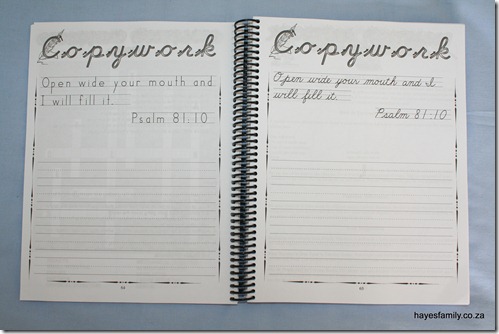 Copywork
Open wide your mouth and
I will fill it.
Psalm 81:10
Copywork
Open wide your mouth and I
will fill it.
Psalm 81:10
hayesfamily.co.za